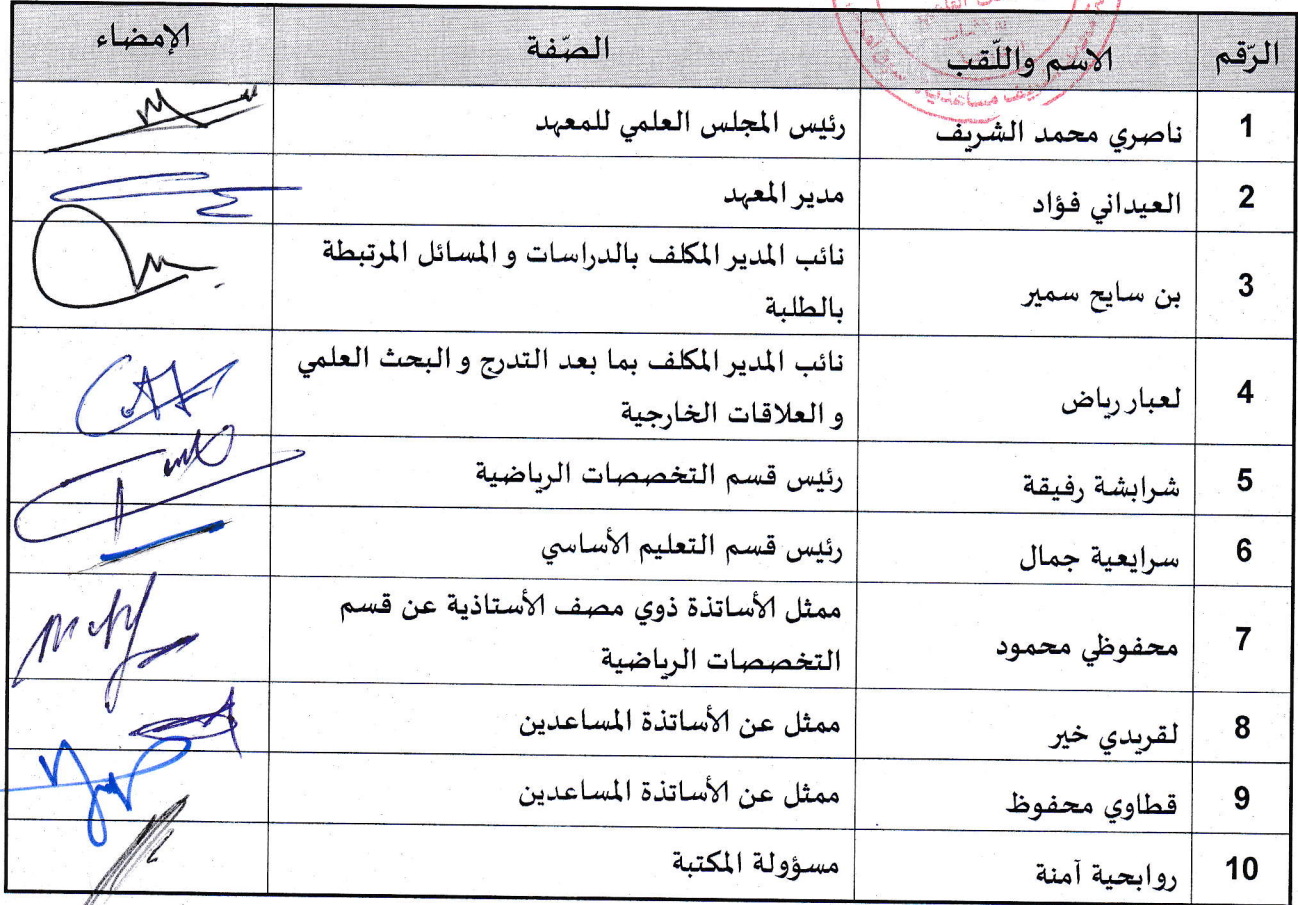 الرّقم الاسم واللّقب الصّفة الإمضاء
1 ناصري محمد الشريف رئيس المجلس العلمي للمعهد
2 العيداني فؤاد مدير المعهد
3 بن سايح سمير نائب المدير المكلف بالدراسات و المسائل المرتبطة
بالطلبة
4 لعبار رياض نائب المدير المكلف بما بعد التدرج و البحث العلمي
و العلاقات الخارجية
5 شرابشة رفيقة رئيس قسم التخصصات الرياضية
6 سرايعية جمال رئيس قسم التعليم الأساسي
7 محفوظي محمود ممثل الأساتذة ذوي مصف الأستاذية عن قسم
التخصصات الرياضية
8 لقريدي خير ممثل عن الأساتذة المساعدين
9 قطاوي محفوظ ممثل عن الأساتذة المساعدين
10 روابحية آمنة مسؤولة المكتبة